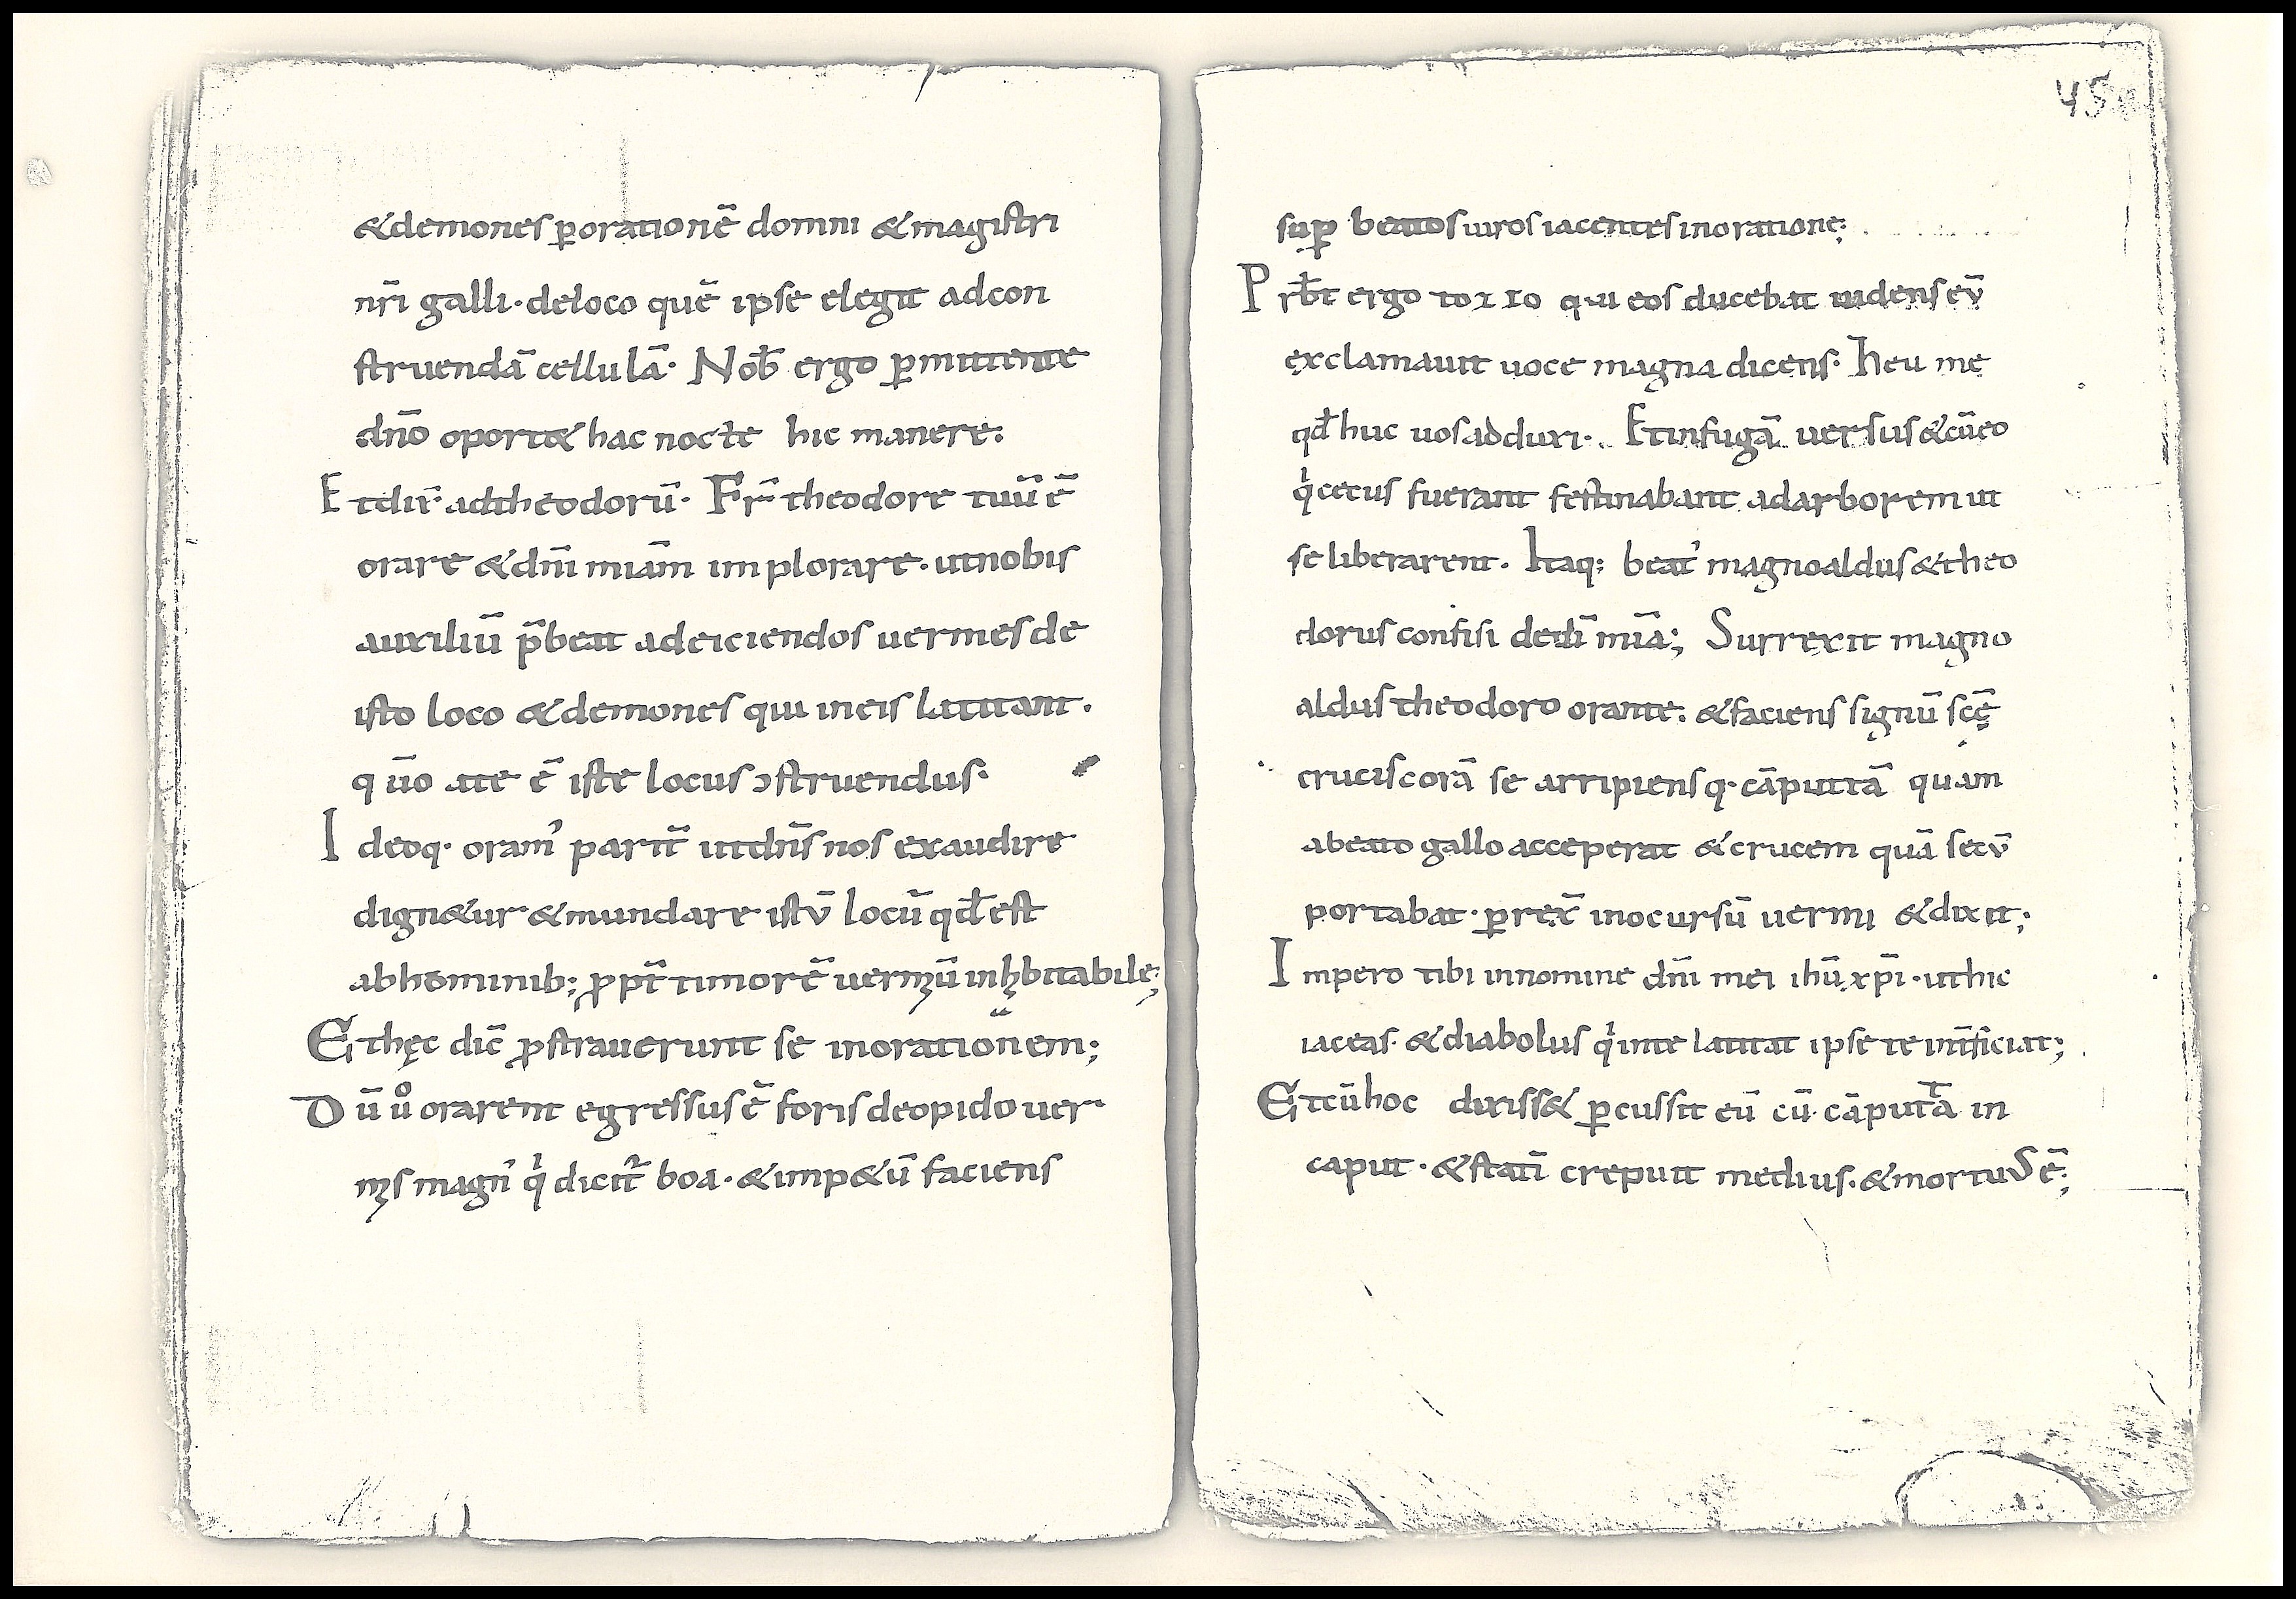 &demones ꝑorationē domni & magistri
nr̄i galli· deloco quē ipse elegit adcon
struendā cellulā· Nob̄ ergo ꝑmittente
dn̄o oport& hac nocte hic manere.
Etdix̄ adtheodorū· Fr̄ theodore tuū ē
orare &dn̄i miām implorare· utnobis
auxiliū p̄beat adeiciendos uermesde
isto loco &demones qui ineis latitant.
q ūo ate ē iste locus ɔstruendus·
Ideoq· oram᾽ parit̄ utdn̄s nos exaudire
dign&ur &mundare istū locū qd̄est
abhominib; ꝓpt̄ timorē uermiū inhabitabile;
Ethęc dic̄ ꝓstrauerunt se inorationem;
Dū uͦ orarent egressus ē foris deopido uer
mis magn᾽ qͥ dicit᷑ boa· &imp&ū faciens
45
suꝑ beatos uiros iacentes inoratione;
Prb̄t ergo tozzo qui eos ducebat uidens eū
exclamauit uoce magna dicens· heu me
qd̄ huc uos adduxi· Etinfugā uersus &cūeo
qͥ cecus fuerant festinabant adarborem ut
se liberarent. Itaq; beat᾽ magnoaldus &theo
dorus confisi dedī miā; Surrexit magno
aldus theodoro orante. &faciens signū scę̄
crucis corā se arripiensq· cāputtā quam
abeato gallo acceperat &crucem quā secū
portabat· ꝑrex̄ inocursū uermi &dixit;
Impero tibi innomine dn̄i mei ihū xp̄i· uthic
iaceas· &diabolus qͥ inte latitat ipse te int̄ficiat;
Etcūhoc dixiss& ꝑcussit eū cū cāputtā in
caput· &statī crepuit medius· &mortuus ē;